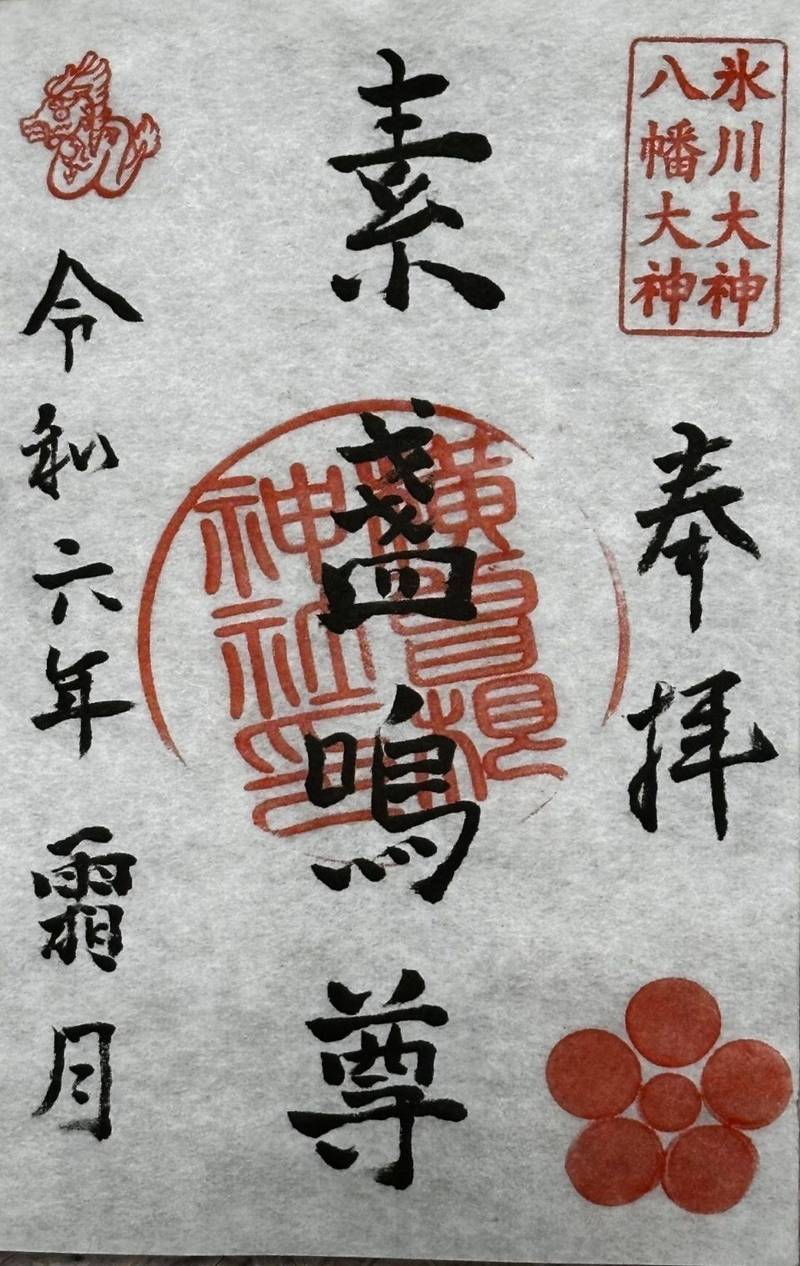 氷川大神
八幡大神
奉拝
素盞鳴尊
横曽根
神社印
令和六年 霜月